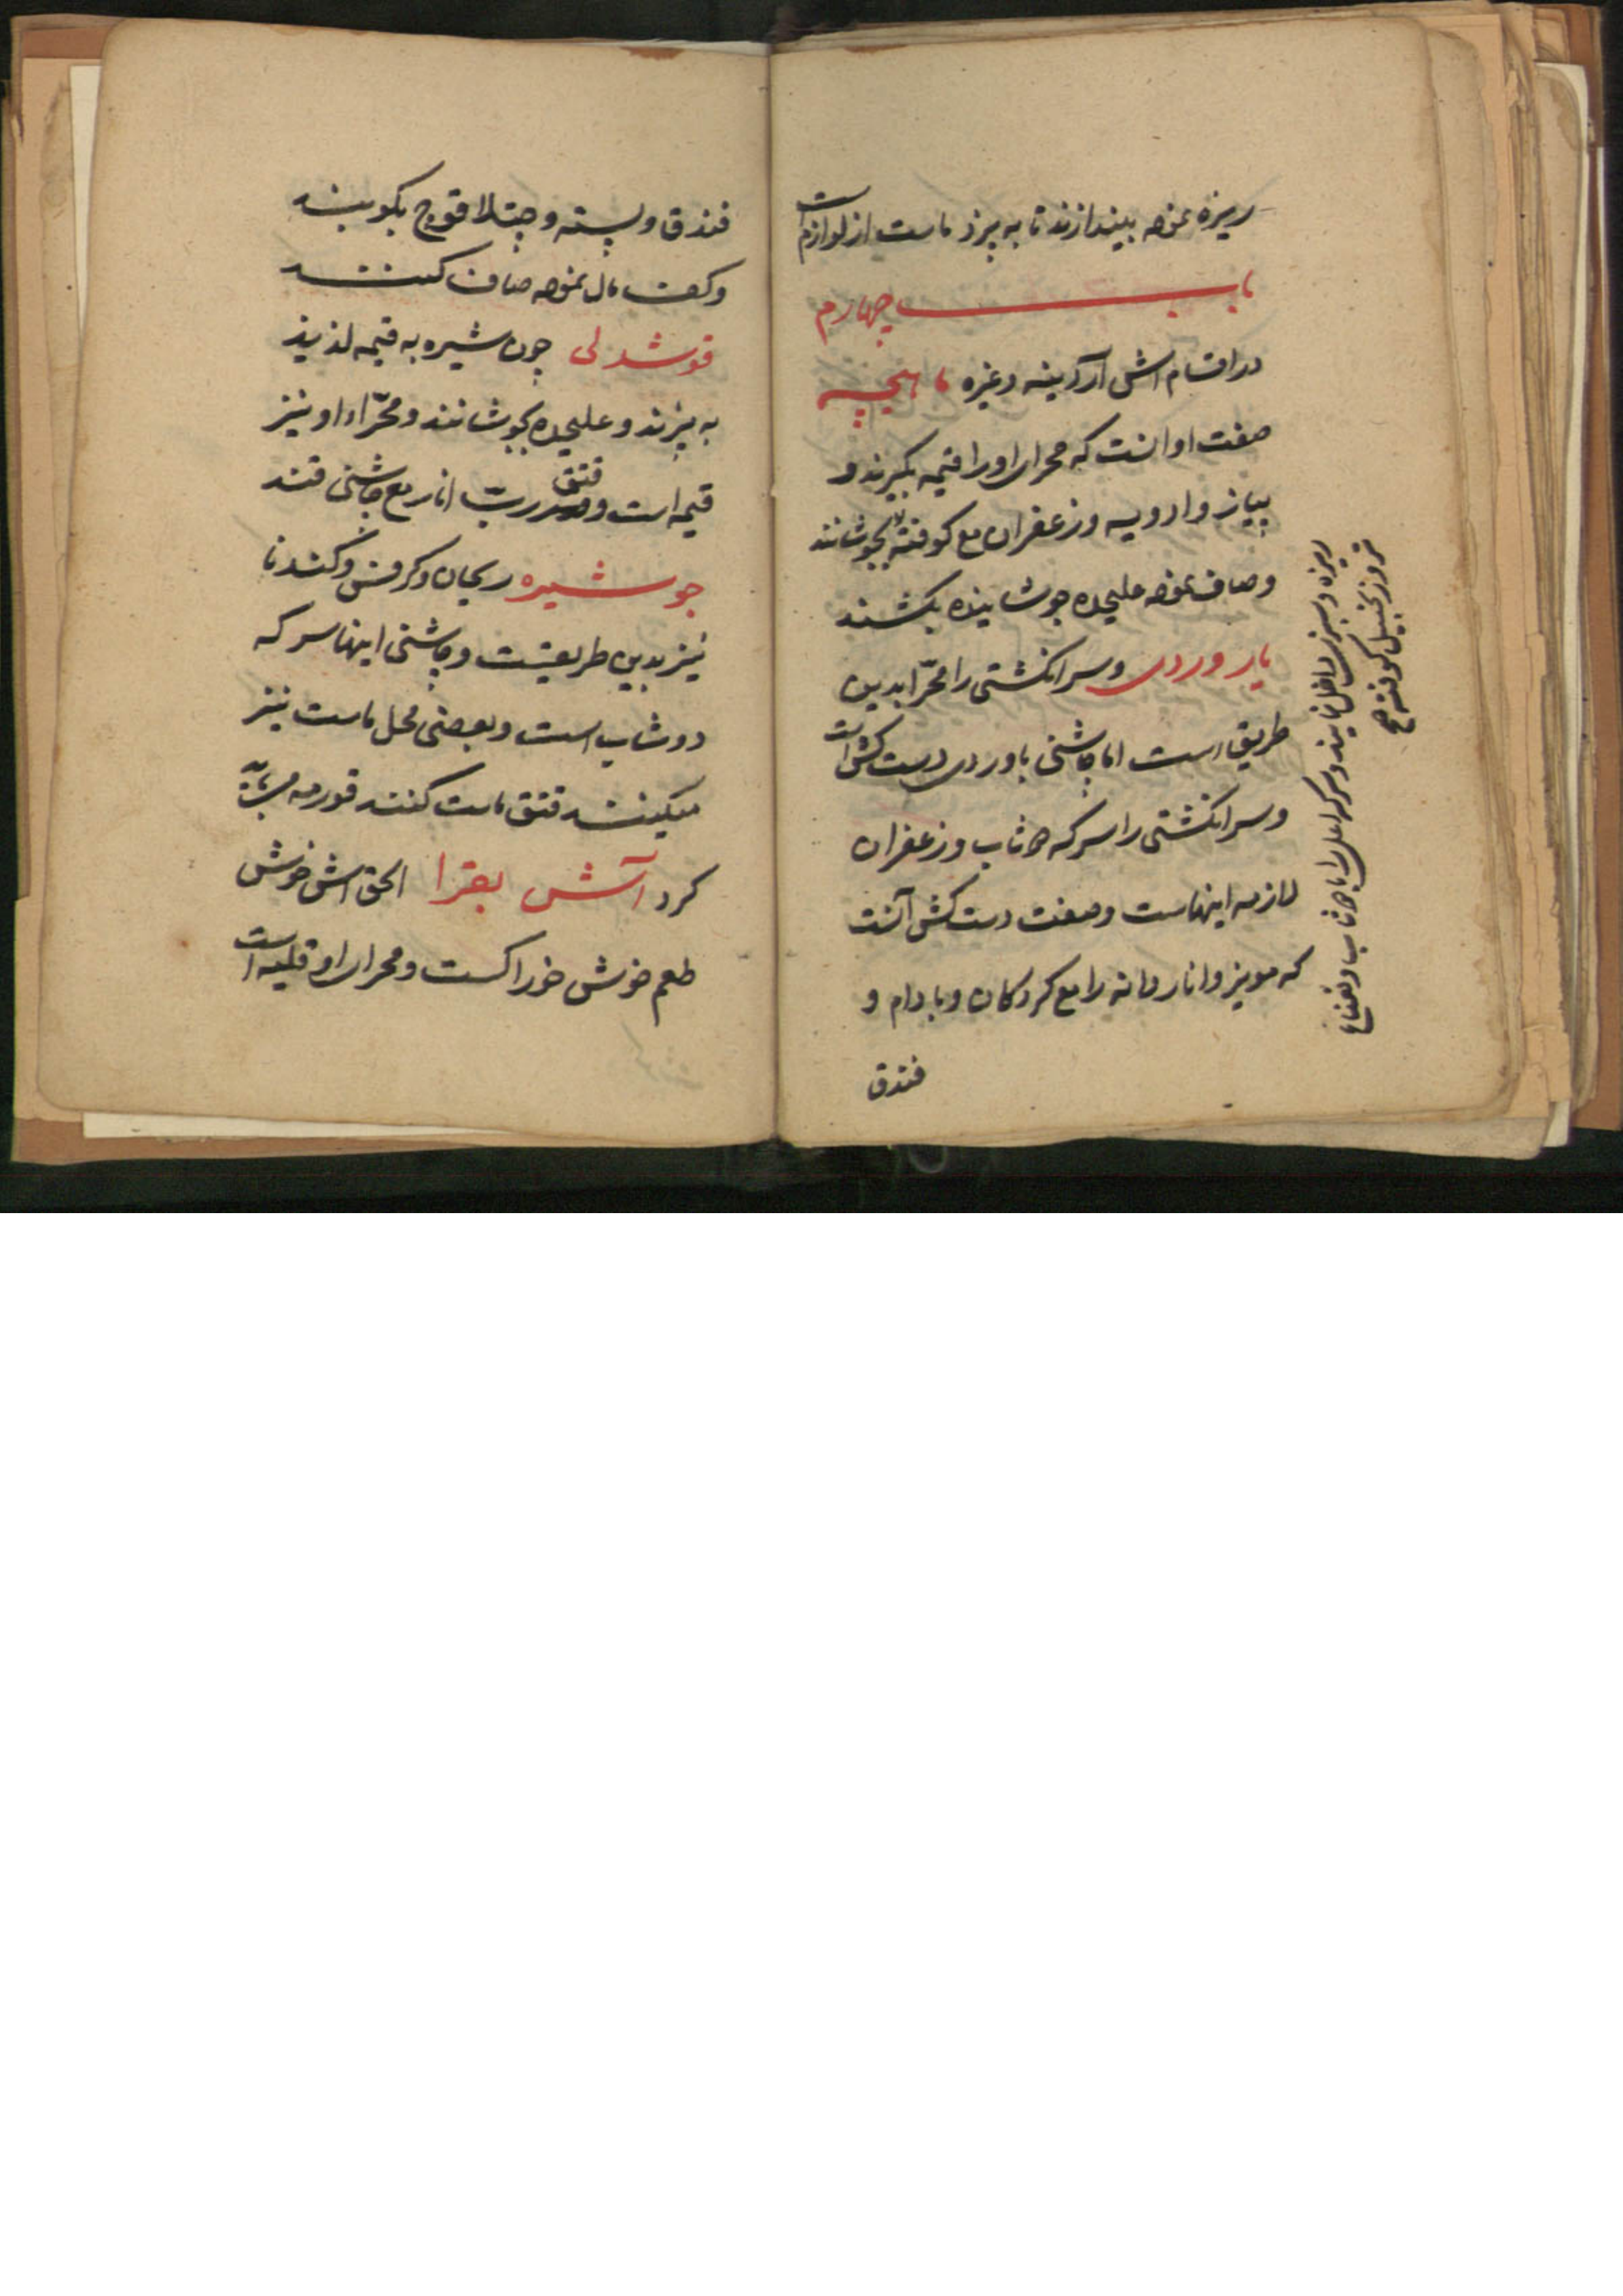 ریزه نموده بیندازند تا به پزد ماست از لوازم است
باب چهارم
در اقسام اش آردینه و غیره ماهیچه
صفت او انست که مجرای او را قیمه بگیرند و
بیاز و ادویه و زعفران مع کوفته بجوشانند
و صاف نموده علیحده جوشانیده بکشند
یاروردی و سرانکشتی را مجرّا بدین
طریق است اما چاشنی باوردی دست کش است
و سرانکشتی را سرکه دوشاب و زعفران
لازمه اینهاست و صفت دست کش آنست
که مویز و انار دانه را مع کردکان و بادام و
فندق
ریزه و سبزی داخل نمایند و سرکه اعلی را با دوشاب و نعناع
تر و زنجبیل کوفته صح
فندق و پسته و چتلاقوچ بکوبند
و کف مال نموده صاف کنند
قوشدلی چون شیره به قیمه لذیذ
به پزند و علیحده بجوشانند و مجرّاء او نیز
قیمه است و قتق رب انار مع چاشنی قند
جو شیره ریحان و کرفش و کندنا
نیز بدین طریقست و چاشنی اینها سرکه
دوشاب است و بعضی محل ماست نیز
میکنند قتق ماست کنند قورمه می باید
کرد آش بقرا الحق اش خوش
طعم خوش خوراکست و مجرای او قلیه است